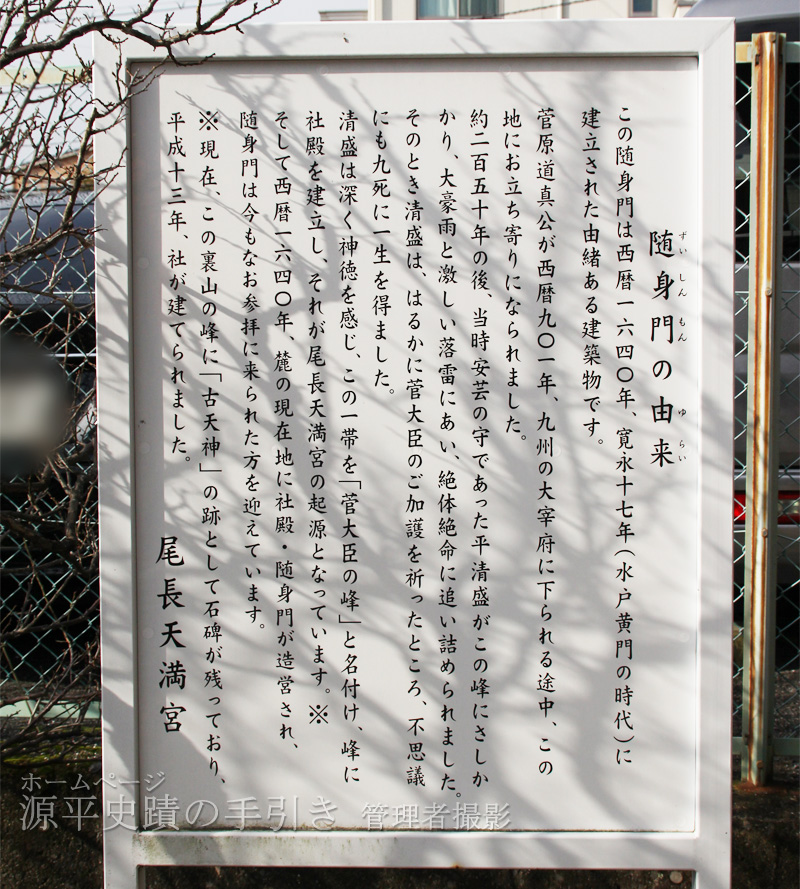 随身門の由来
ずいしんもん ゆらい
この随身門は西暦一六四〇年、寛永十七年(水戸黄門の時代)に
建立された由緒ある建築物です。
菅原道真公が西暦九〇一年、九州の大宰府に下られる途中、この
地にお立ち寄りになられました。
約二百五十年の後、当時安芸の守であった平清盛がこの峰にさしか
かり、大豪雨と激しい落雷にあい、絶体絶命に追い詰められました。
そのとき清盛は、はるかに菅大臣のご加護を祈ったところ、不思議
にも九死に一生を得ました。
清盛は深く神徳を感じ、この一帯を「菅大臣の峰」と名付け、峰に
社殿を建立し、それが尾長天満宮の起源となっています。※
そして西暦一六四〇年、麓の現在地に社殿・随身門が造営され、
随身門は今もなお参拝に来られた方を迎えています。
※現在、この裏山の峰に「古天神」の跡として石碑が残っており、
平成十三年、社が建てられました。
尾長天満宮
ホームページ
源平史蹟の手引き 管理者撮影